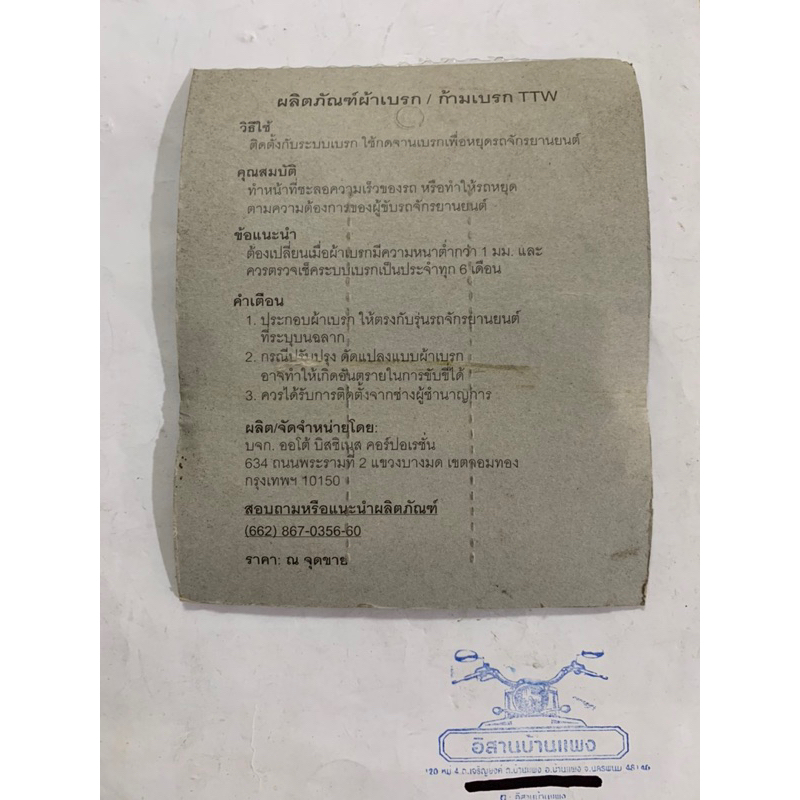 ผลิตภัณฑ์ผ้าเบรก / ก้ามเบรก TTW
วิธีใช้
ติดตั้งกับระบบเบรก ใช้กดจานเบรกเพื่อหยุดรถจักรยานยนต์
คุณสมบัติ
ทำหน้าที่ชะลอความเร็วของรถ หรือทำให้รถหยุด
ตามความต้องการของผู้ขับรถจักรยานยนต์
ข้อแนะนำ
ต้องเปลี่ยนเมื่อผ้าเบรกมีความหนาต่ำกว่า 1 มม. และ
ควรตรวจเช็คระบบเบรกเป็นประจำทุก 6 เดือน
คำเตือน
1. ประกอบผ้าเบรก ให้ตรงกับรุ่นรถจักรยานยนต์
ที่ระบุบนฉลาก
2. กรณีปรับปรุง ดัดแปลงแบบผ้าเบรก
อาจทำให้เกิดอันตรายในการขับขี่ได้
3. ควรได้รับการติดตั้งจากช่างผู้ชำนาญการ
ผลิต/จัดจำหน่ายโดย:
บจก. ออโต้ บิสซิเนส คอร์ปอเรชั่น
634 ถนนพระรามที่ 2 แขวงบางมด เขตจอมทอง
กรุงเทพฯ 10150
สอบถามหรือแนะนำผลิตภัณฑ์
(662) 867-0356-60
ราคา: ณ จุดขาย
อีสานบ้านแพง
120 หมู่ 4 ต.บ้านแพง อ.บ้านแพง จ.นครพนม
อีสานบ้านแพง